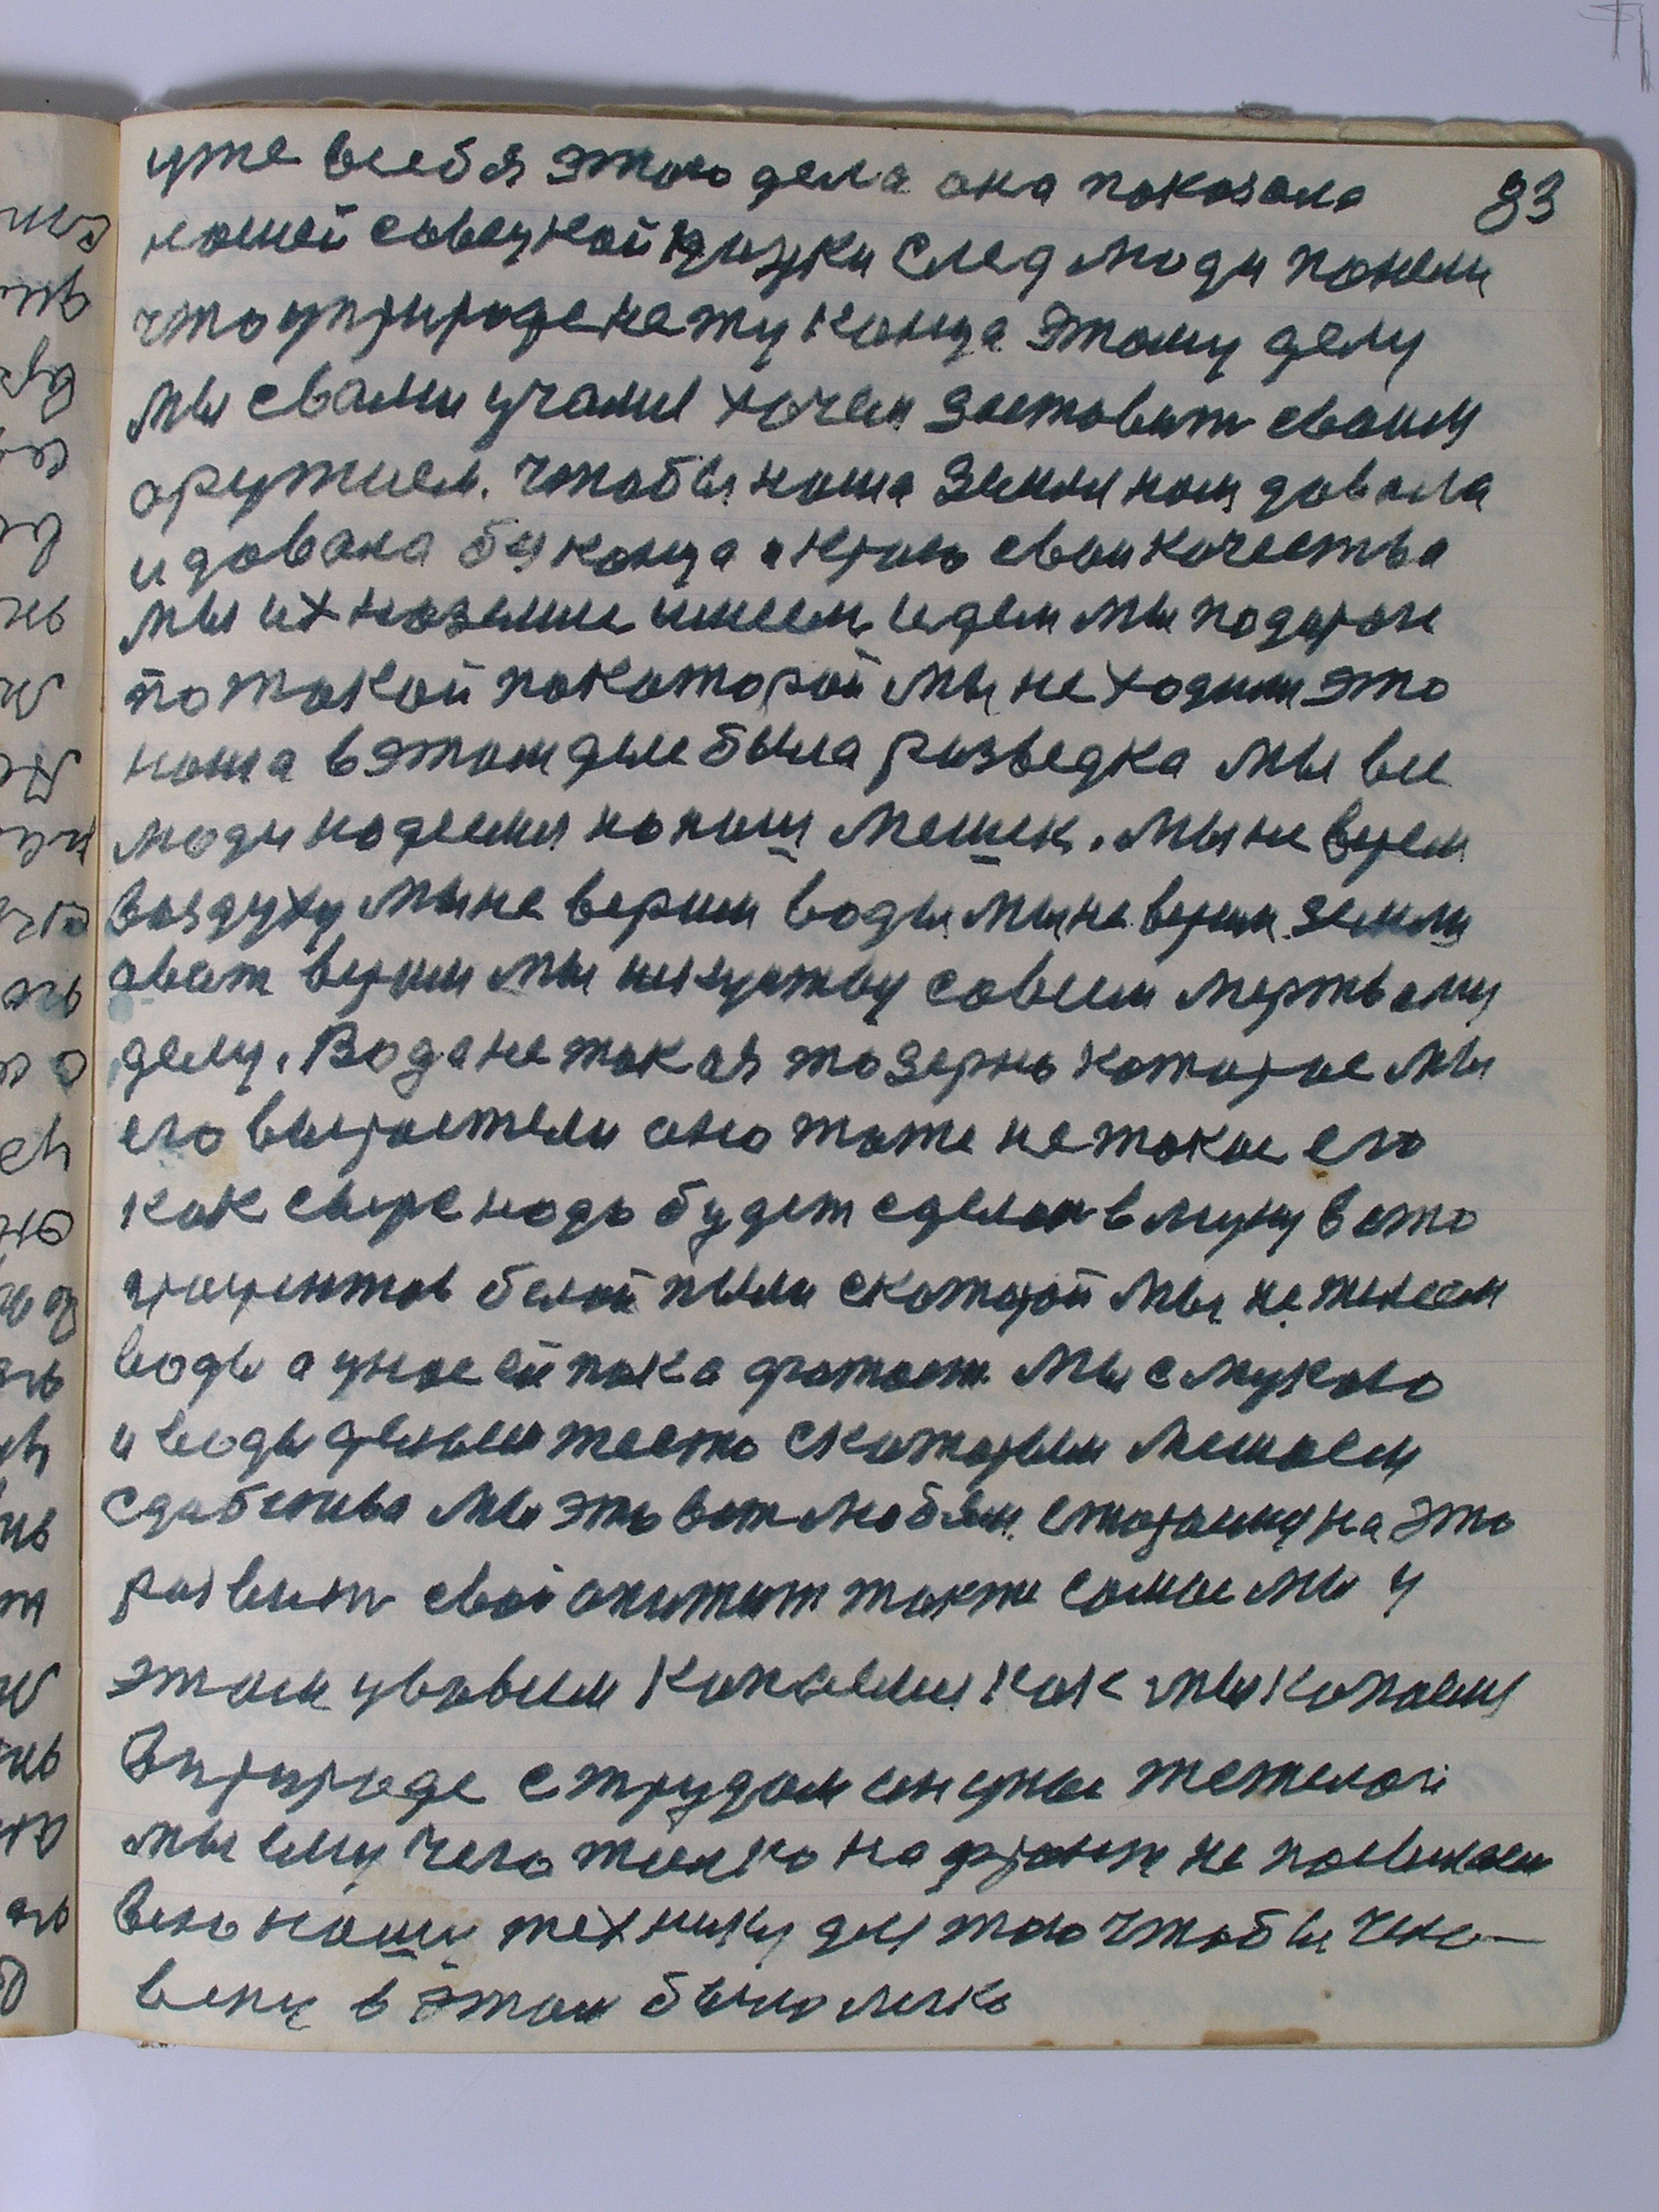 уже всебя этого дела она показала 83
нашей совецкой науки след люди понели
что уприроде нету конца этому делу
мы свами учамся хочем заставит своим
оружием. чтобы наша земля нам давала
и давала бу конца и краю свои качества
мы их наземле имеем идем мы подароге
по такой покоторой мы не ходили это
наша вэтом деле была разведка мы все
люди надеемся на наш мешек. мы не верем
воздуху мы не верим воды мы не верим земли
а вот верим мы искуству совсем мертвому
делу. Вода не такая то зерно которае мы
его выростели оно тоже не такое его
как сыре нада будет сделат в муку в сто
процентов белой пыли скоторой мы не женеем
воды а унас ей пака фатает мы с мукою
и воды делаем тесто скоторым мешаем
сдабства мы это вот любим стораемся на это
развить свой апитит также самое мы у
этом усвоем копаемся как мы копаемся
Вприроде с трудом он унас тежелай
мы ему чего только на фронт не посылаем
всю нашу технику для того чтобы чело-
веку в этом было легко